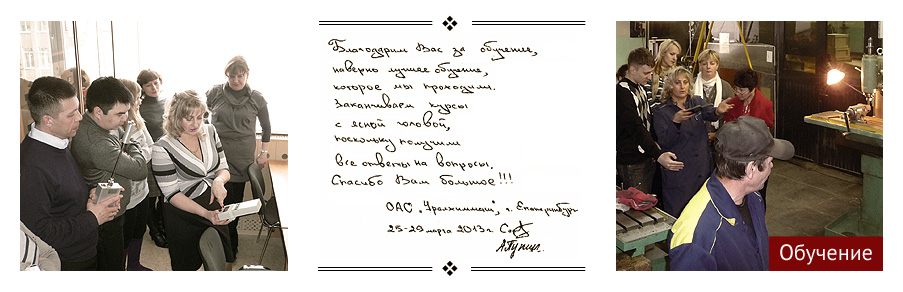 Благодарим Вас за обучение,
наверно лучшее обучение,
которое мы проходили.
Заканчиваем курсы
с ясной головой,
поскольку получили
все ответы на вопросы.
Спасибо Вам большое!!!
ОАО "Уралхиммаш", г. Екатеринбург
25-29 марта 2013г.
Обучение